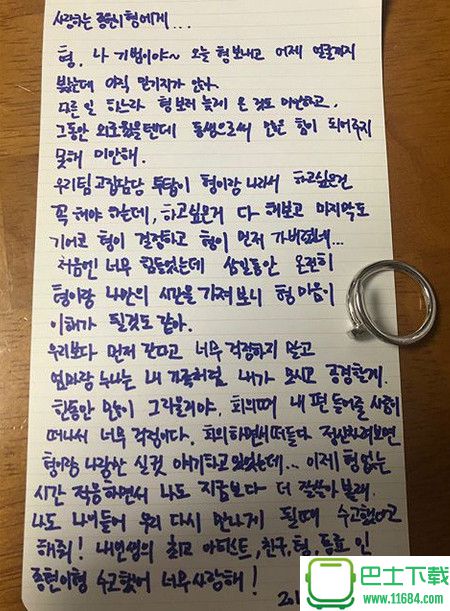 사랑하는 종현이형에게...
형, 나 기범이야~ 오늘 형 보내고 어제 얼굴까지
봤는데 아직 믿기지가 않아.
다른 일 하느라 형 보러 늦게 온 것도 미안하고,
그동안 외로웠을텐데 동생으로써 많은 힘이 되어주지
못해 미안해.
우리팀 고집담당 투탑이 형이랑 나라서 하고싶은건
꼭 해야 하는데, 하고싶은거 다 해보고 마지막도
기어코 형이 결정하고 형이 먼저 가버렸네...
처음엔 너무 힘들었는데 삼일동안 온전히
형이랑 나만의 시간을 가져보니 형 마음이
이해가 될것도 같아.
우리보다 먼저 간다고 너무 걱정하지 말고
엄마랑 누나는 내 가족처럼 내가 모시고 공경할게.
한동안 많이 그리울거야, 회의때 내 편 들어줄 사람이
떠나서 너무 걱정이다. 회의하면서 떠들다 정신차려보면
형이랑 나랑만 실컷 얘기하고 있었는데... 이제 형 없는
시간 적응하면서 나도 지금보다 더 잘 살아 볼래.
나도 나이들어 우리 다시 만나게 될때 수고했다고
해줘! 내 인생의 최고 아티스트, 친구, 형, 동료 인
종현이형 수고했어 너무 사랑해!
201
巴士下载
www.11684.com